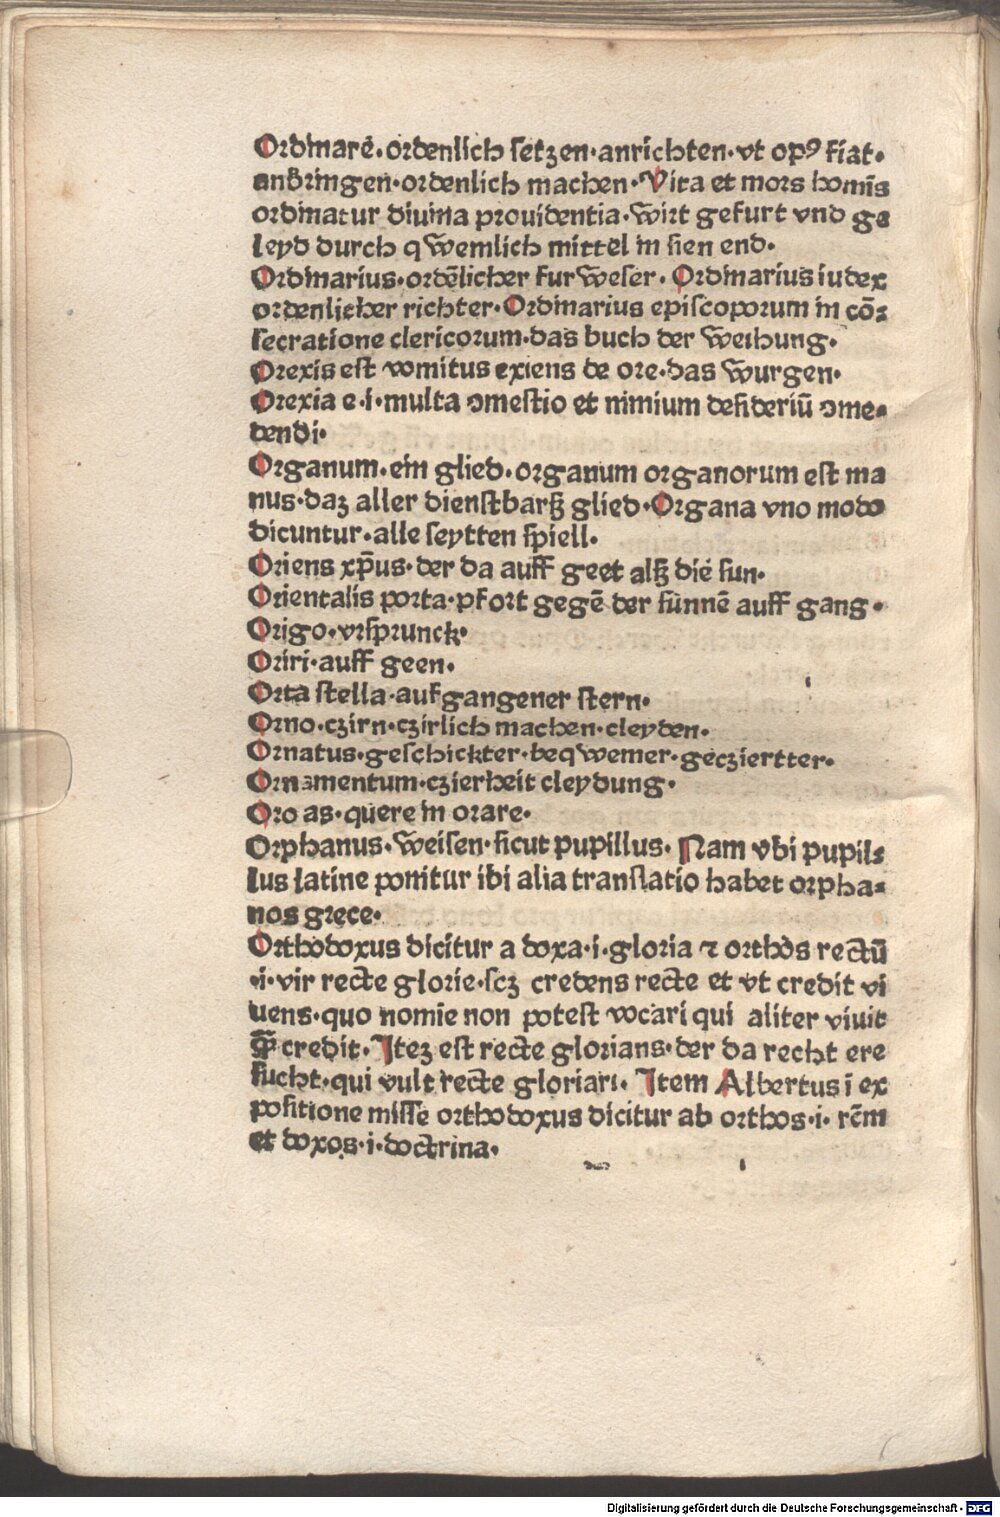 Ordinarē. ordenlich setzen·anrichten·vt opꝰ fiat·
anbringen·ordenlich machen·Vita et mors homīs
ordinatur diuina prouidentia·wirt gefurt vnd ge
leyd durch qwemlich mittel in sien end·
Ordinarius·ordēlicher furweser. Ordinarius iudex
ordenlicher richter·Ordinarius episcoporum in cō⸗
secratione clericorum·das buch der weihung.
Orexis est vomitus exiens de ore·das wurgen·
Orexia e·i·multa ꝯmestio et nimium desideriū ꝯme⸗
dendi·
Organum·ein glied·organum organorum est ma
nus·daz aller dienstbarß glied·Organa vno modo
dicuntur·alle seytten spiell·
Oriens xp̄us·der da auff geet alß die sun·
Orientalis porta·pfort gegē der sunnē auff gang·
Origo·vrsprunck·
Oriri·auff geen·
Orta stella·aufgangener stern·
Orno·czirn·czirlich machen·cleyden·
Ornatus·geschickter·beqwemer·gecziertter·
Ornamentum·czierheit cleydung·
Oro as·quere in orare·
Orphanus·weisen·sicut pupillus. Nam vbi pupil⸗
lus latine ponitur ibi alia translatio habet orpha⸗
nos grece·
Orthodoxus dicitur a doxa·i·gloria ⁊ orthos rectū
·i·vir recte glorie·scz credens recte et vt credit vi
uens·quo nomīe non potest vocari qui aliter viuit
qͣ̄ credit·Itez est recte glorians·der da recht ere
sucht·qui vult recte gloriari. Item Albertus ī ex
positione misse orthodoxus dicitur ab orthos·i· rēm
et doxos·i·doctrina·
Digitalisierung gefördert durch die Deutsche Forschungsgemeinschaft · DFG